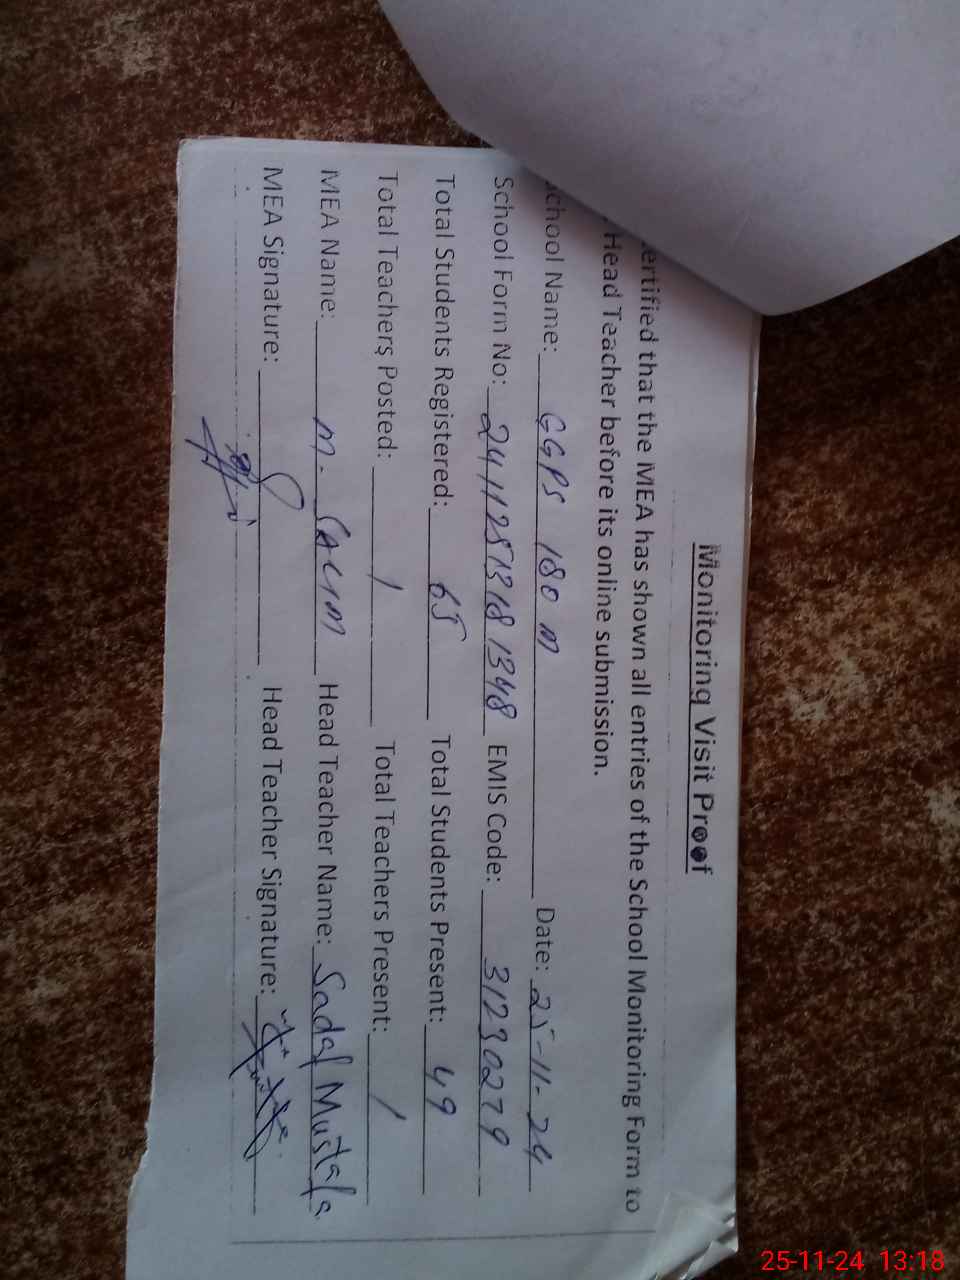 Monitoring Visit Proof
ertified that the MEA has shown all entries of the School Monitoring Form to
Head Teacher before its online submission.
chool Name: GGPS 180 M Date: 25-11-24
School Form No: EMIS Code: 31230279
Total Students Registered: 65 Total Students Present: 49
Total Teachers Posted: 1 Total Teachers Present: 1
MEA Name: M. Salim Head Teacher Name: Sadaf Mustafa
MEA Signature: Head Teacher Signature:
25-11-24 13:18